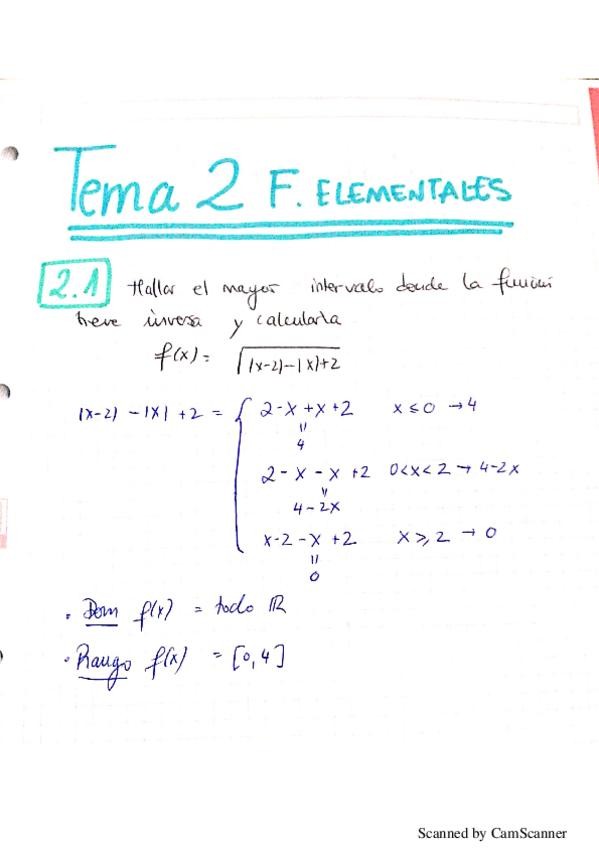 Tema 2 F. ELEMENTALES
2.1 Hallar el mayor intervalo donde la función
tiene inversa y calcularla
f(x) = √|x-2|-|x|+2
|x-2| - |x| + 2 = { 2-x+x+2 x ≤ 0 → 4
"
4
2-x-x+2 0<x<2 → 4-2x
"
4-2x
x-2-x+2 x ≥ 2 → 0
"
0
• Dom f(x) = todo ℝ
• Rango f(x) = [0,4]
Scanned by CamScanner